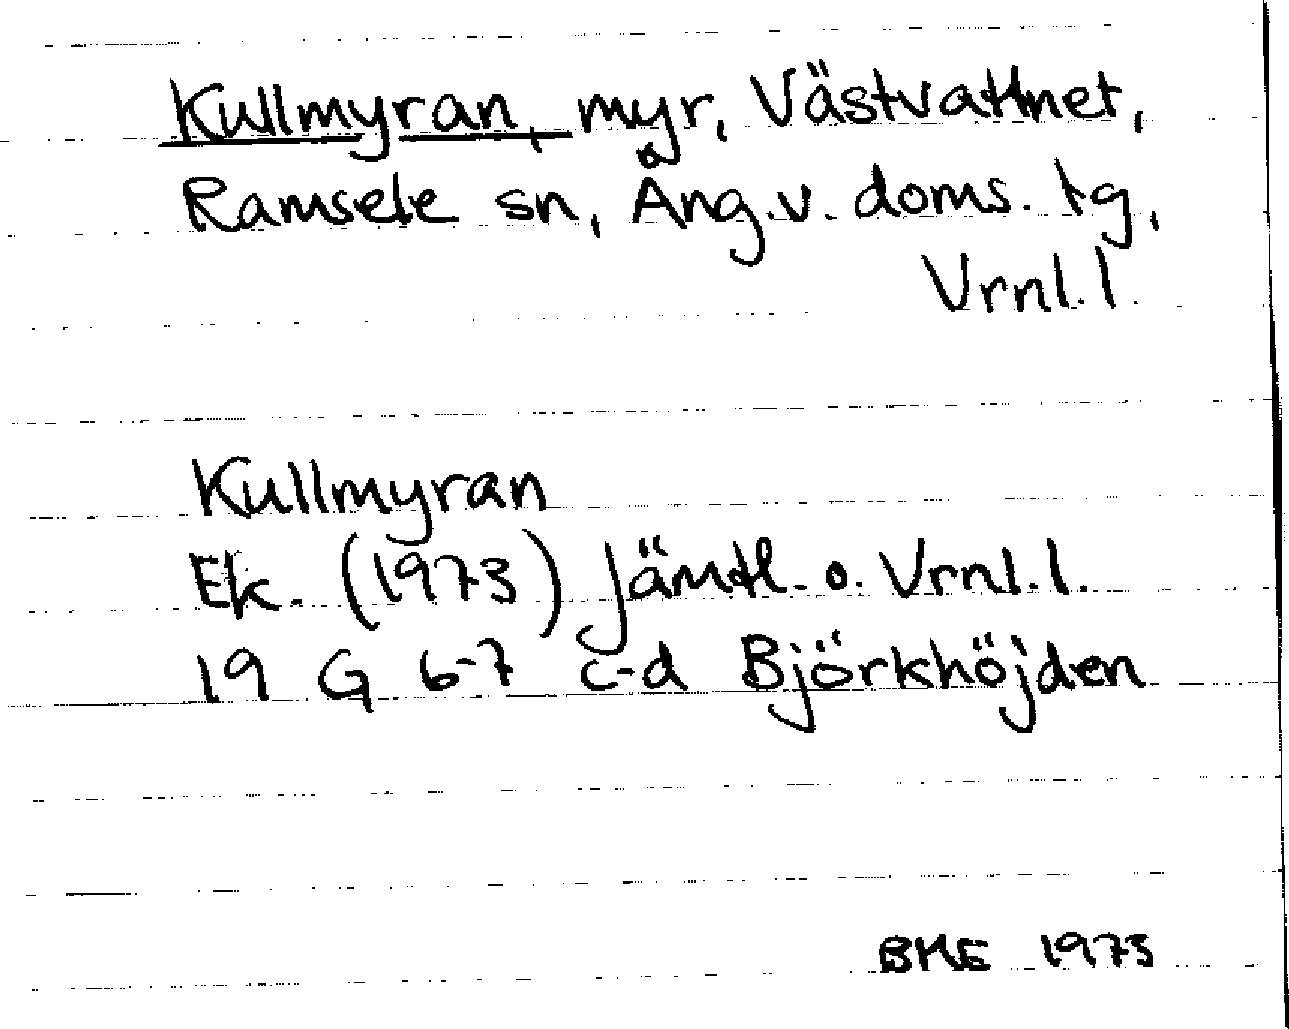 Kullmyran, myr, Västvattnet,
Ramsele sn, Ång.v. doms. tg,
Vrnl.l.
Kullmyran
Ek. (1973) Jämtl. o. Vrnl.l.
19 G 6-7 c-d Björkhöjden
1973